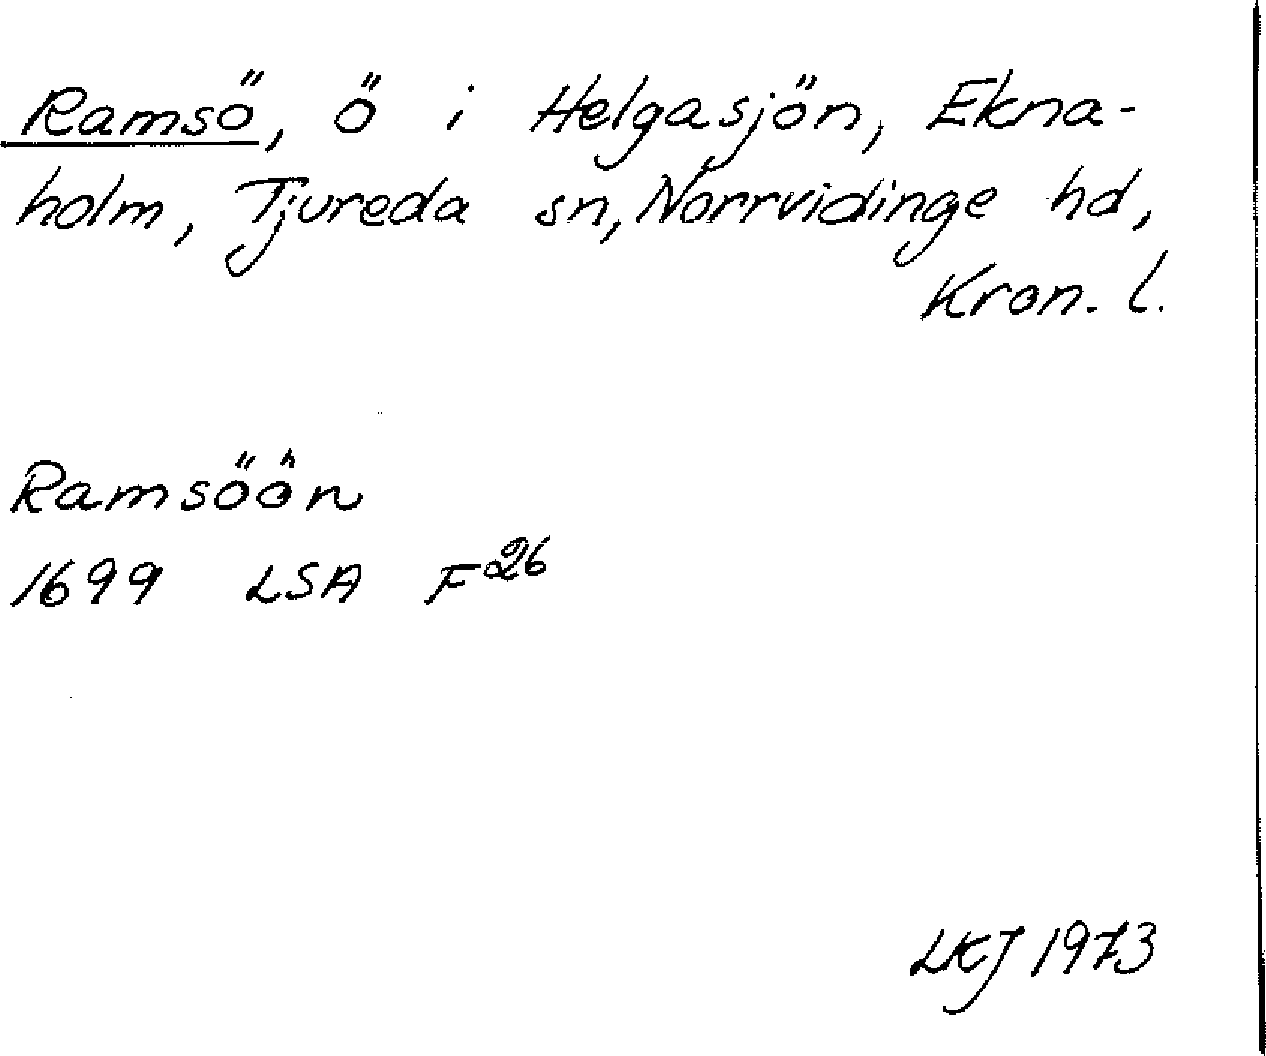 Ramsö, ö i Helgasjön, Ekna-
holm, Tjureda sn, Norrvidinge hd,
Kron. l.
Ramsöön
1699 LSA F26
LKJ 1973